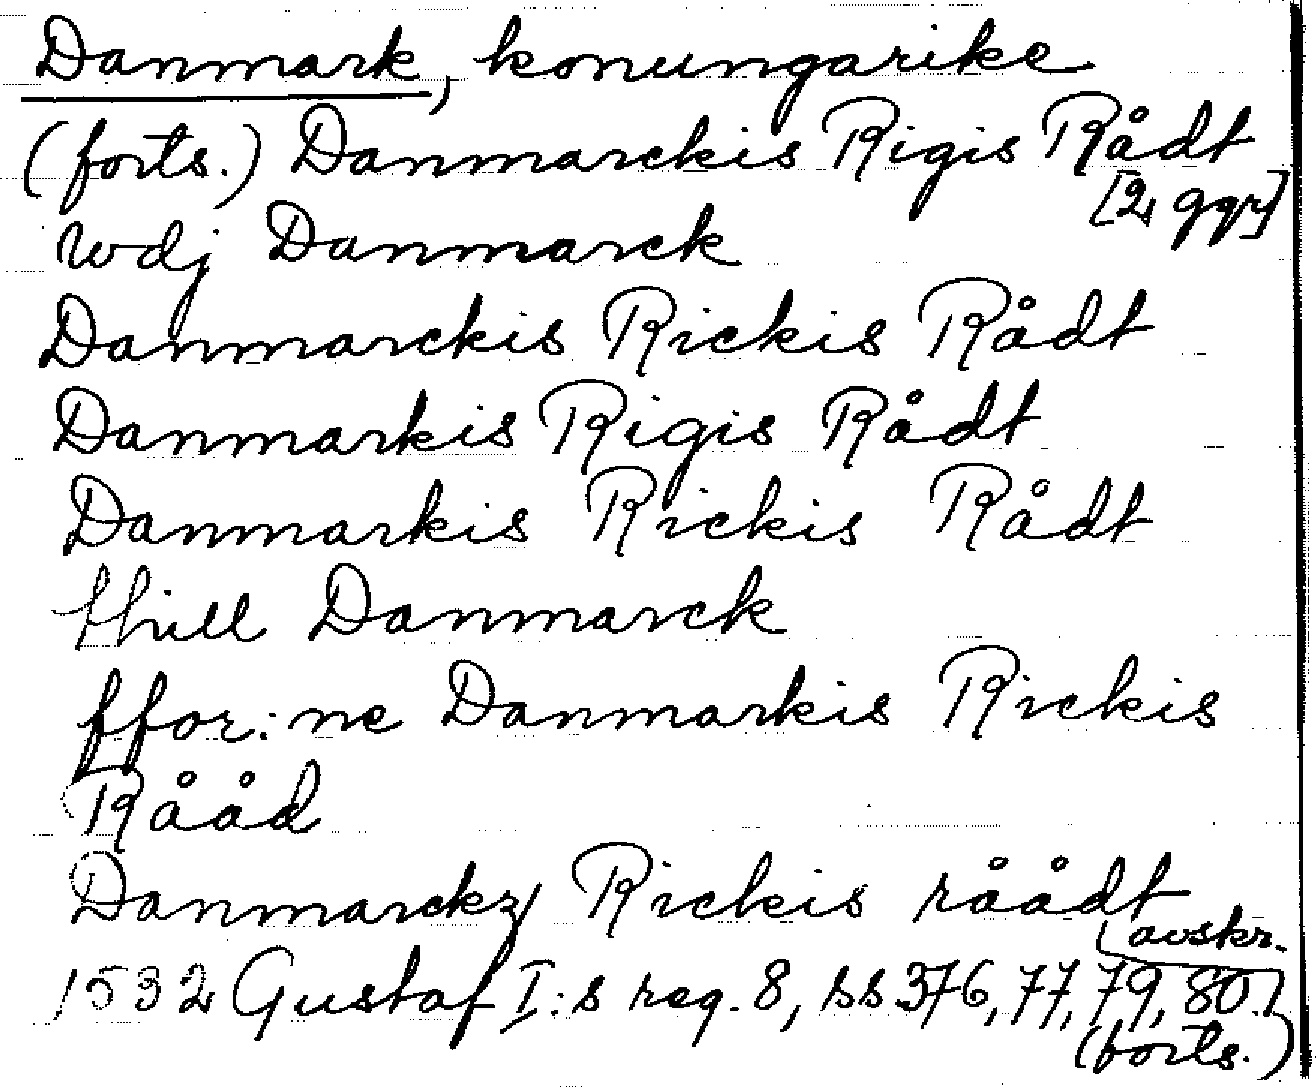 Danmark, konungarike
(forts.) Danmarckis Rigis Rådt
[2 ggr]
wdj Danmarck
Danmarckis Rickis Rådt
Danmarkis Rigis Rådt
Danmarkis Rickis Rådt
thill Danmarck
ffor:ne Danmarkis Rickis
Rååd
Danmarckz Rickis råådt
[avskr.
1532 Gustaf I:s reg. 8, ss 376, 77, 79, 80.]
(forts.)